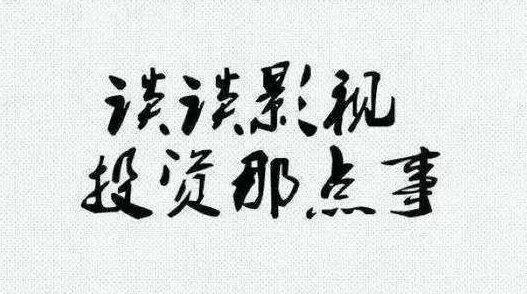 谈谈影视
投资那点事